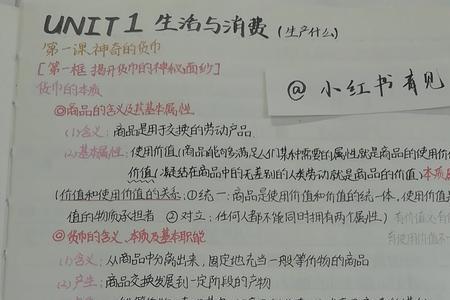 UNIT 1 生活与消费 (生产什么)
第一课 神奇的货币
[第一框 揭开货币的神秘面纱]
@小红书有见
货币的本质
◎商品的含义及其基本属性
(1)含义：商品是用于交换的劳动产品.
(2)基本属性：使用价值(商品能够满足人们某种需要的属性就是商品的使用价值
价值(凝结在商品中的无差别的人类劳动就是商品的价值)本质属
(价值和使用价值的关系：①统一：商品是使用价值和价值的统一体，使用价值是
值的物质承担者 ②对立：任何人都不能同时拥有两个属性) 有价值必有使
◎货币的含义、本质及基本职能 有使用价值不一
(1)含义：从商品中分离出来，固定地充当一般等价物的商品
(2)产生：商品交换发展到一定阶段的产物